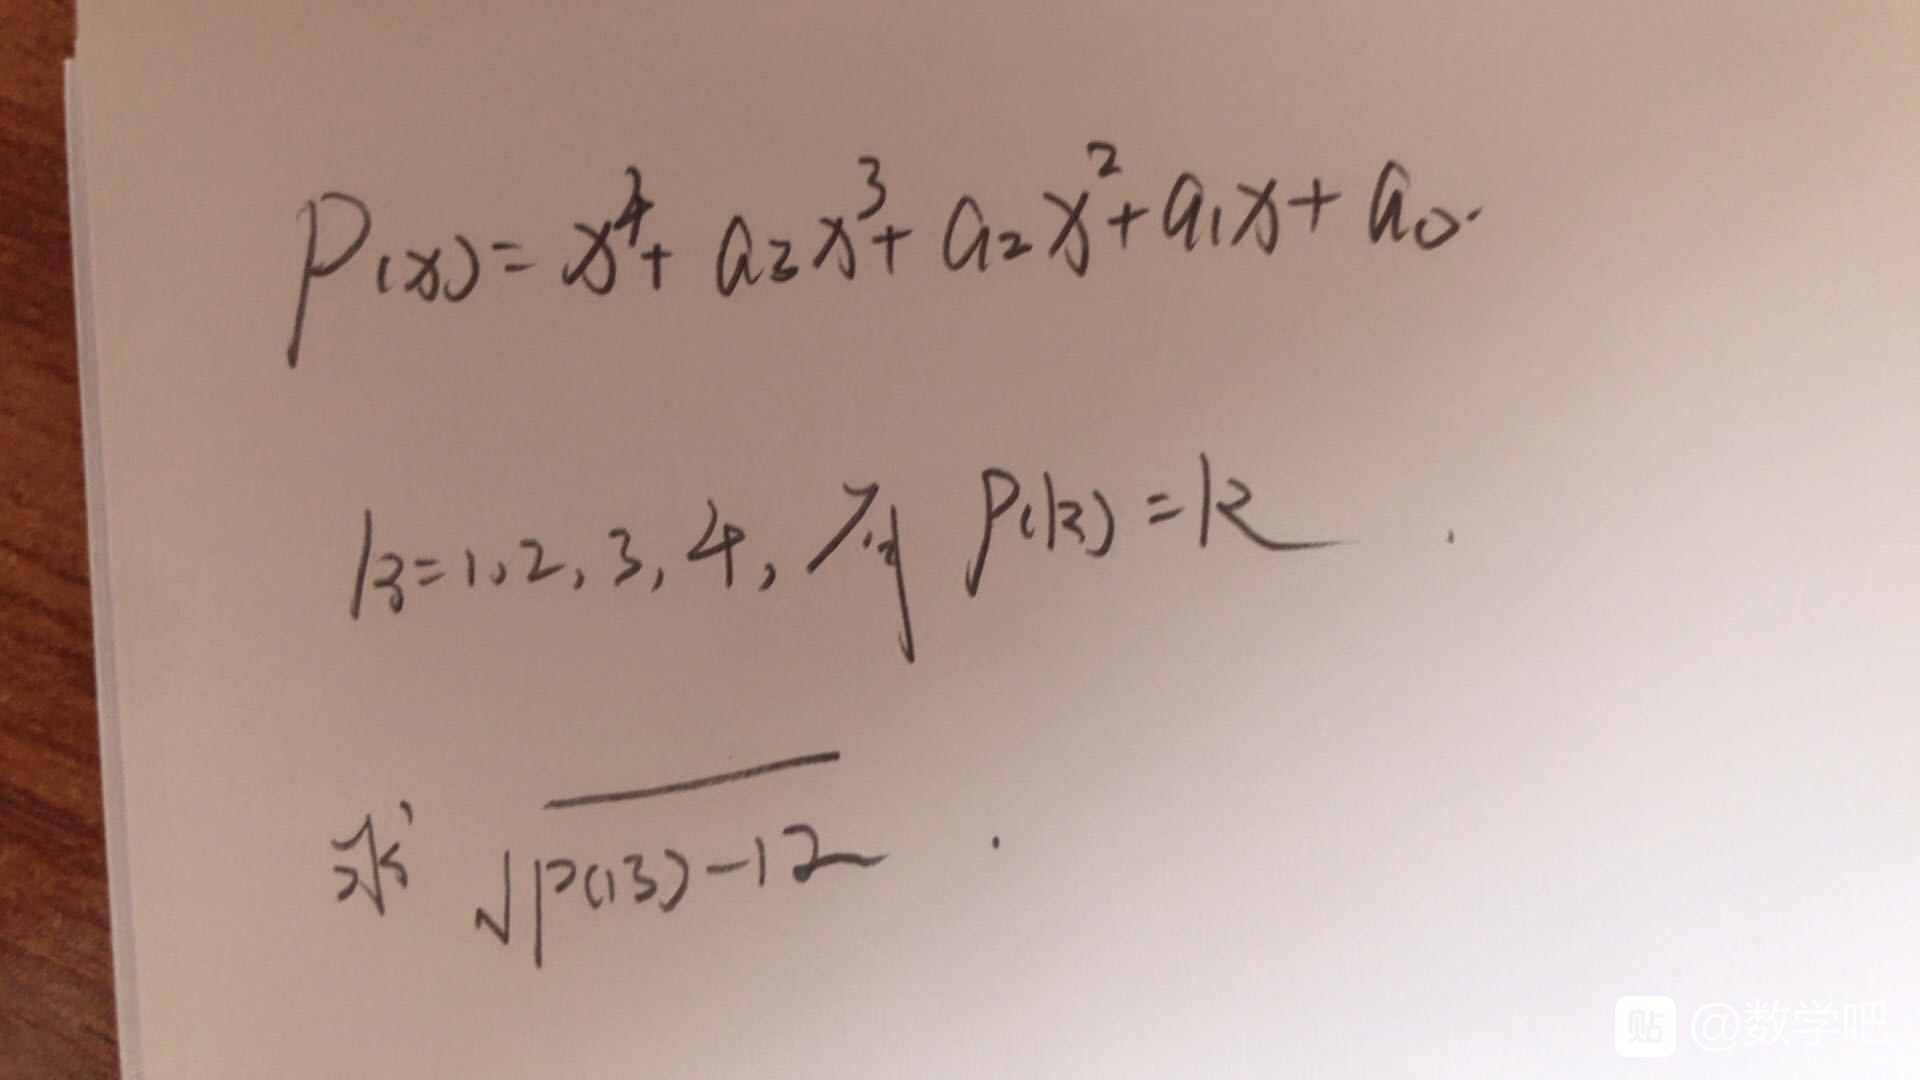 P(x)=x⁴+a₃x³+a₂x²+a₁x+a₀.
k=1,2,3,4,有P(k)=k.
求√P(13)-12.
贴 @数学吧